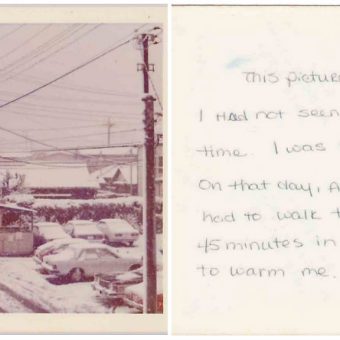 This picture
I Had not seen
time. I was
On that day, A
had to walk t
45 minutes in
to warm me.